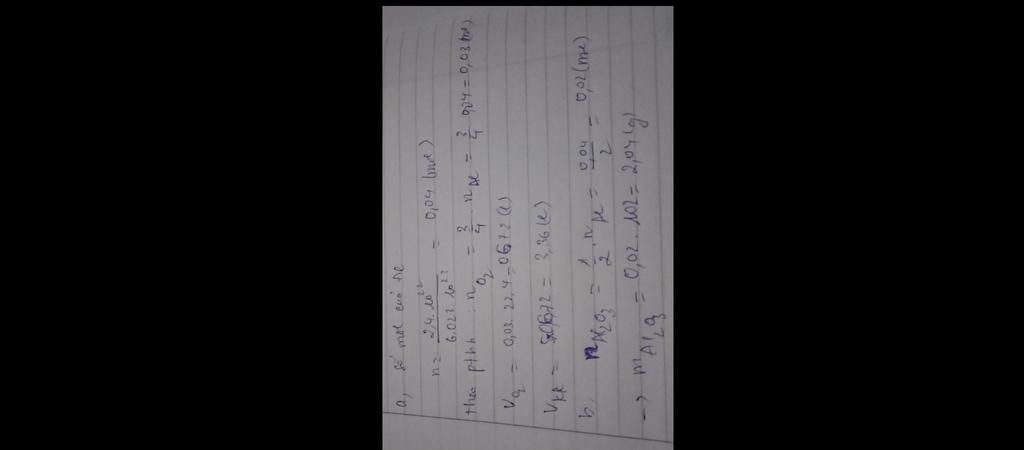 a, số mol của Al
n = 2,4.10²² / 6,023.10²³ = 0,04 (mol)
theo pthh: n O₂ = 3/4 . n Al = 3/4 0,04 = 0,03 (mol)
V O₂ = 0,03.22,4 = 0,672 (l)
V KK = 5.0,672 = 3,36 (l)
b, n Al₂O₃ = 1/2 . n Al = 0,04/2 = 0,02 (mol)
→ m Al₂O₃ = 0,02.102 = 2,04 (g)